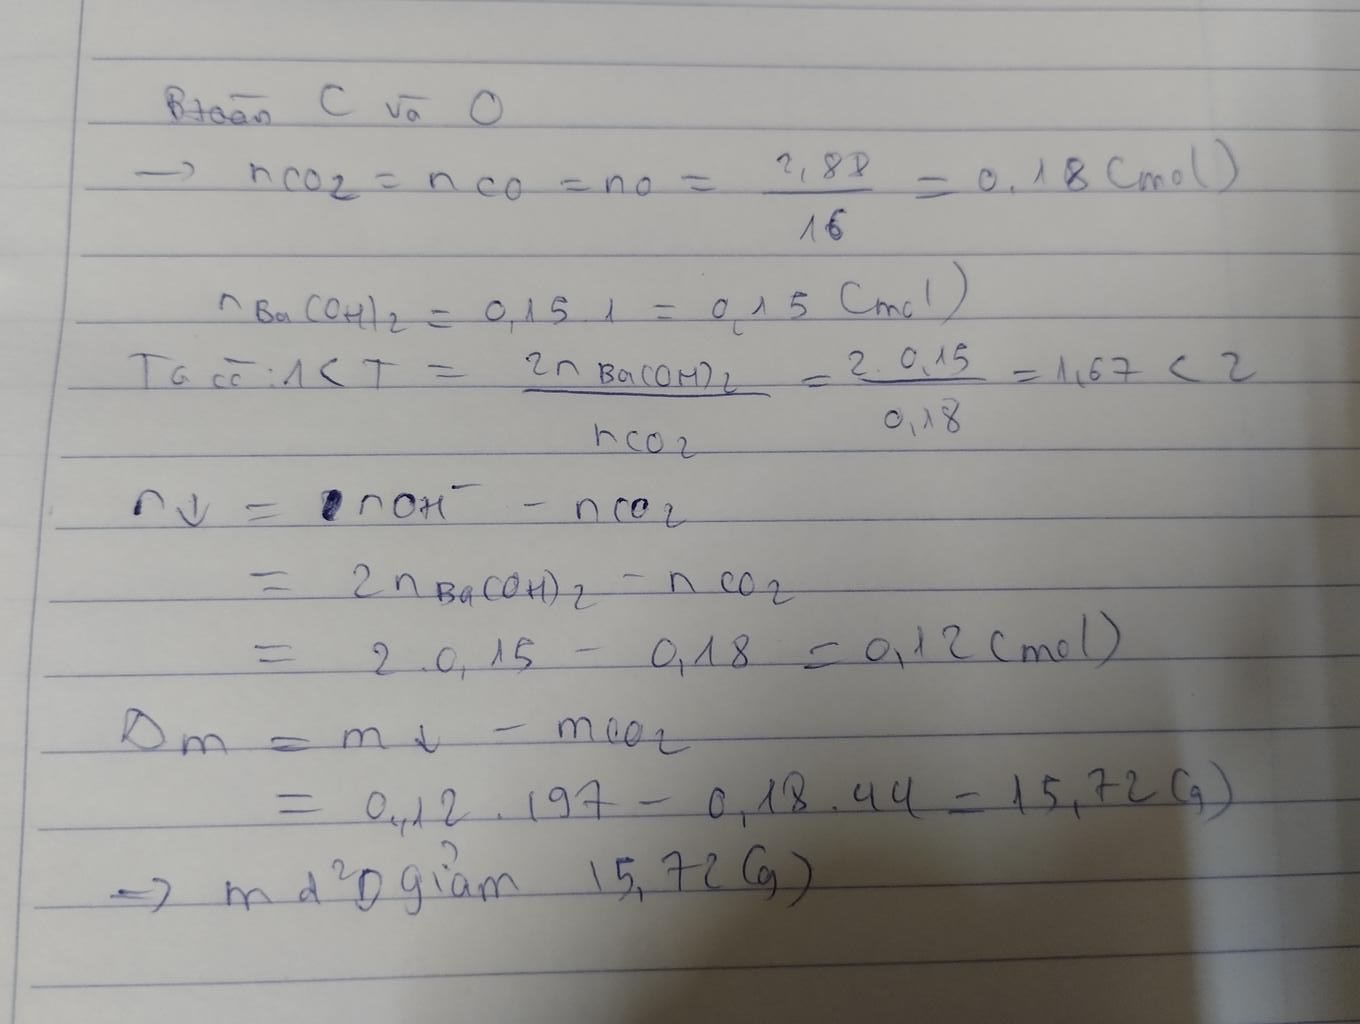 Btoàn C và O
→ nCO2 = nCO = nO = 2,88 / 16 = 0,18 (mol)
nBa(OH)2 = 0,15 . 1 = 0,15 (mol)
Ta có: 1 < T = 2nBa(OH)2 / nCO2 = 2.0,15 / 0,18 = 1,67 < 2
n↓ = nOH⁻ - nCO2
= 2nBa(OH)2 - nCO2
= 2.0,15 - 0,18 = 0,12 (mol)
Δm = m↓ - mCO2
= 0,12 . 197 - 0,18 . 44 = 15,72 (g)
=> m d²D giảm 15,72 (g)